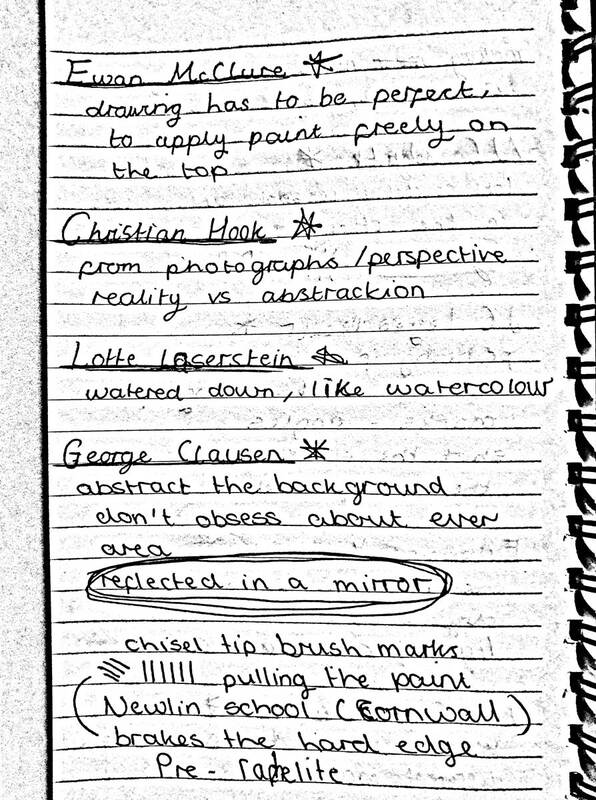 Ewan McClure
drawing has to be perfect,
to apply paint freely on
the top
Christian Hook
from photographs / perspective
reality vs abstrackion
Lotte Laserstein
watered down, like watercolour
George Clausen
abstract the background
don't obsess about ever
area
reflected in a mirror
chisel tip brush marks
pulling the paint
(Newlin school (Cornwall)
brakes the hard edge
Pre-rapelite